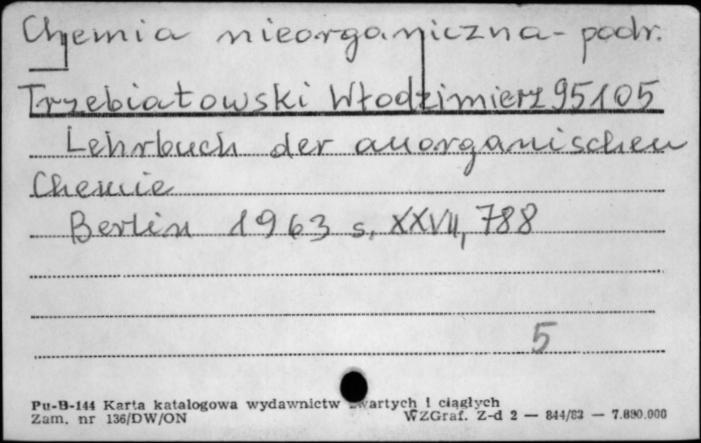 Chemia nieorganiczna - podr.
Trzebiatowski Włodzimierz 95105
Lehrbuch der anorganischen
Chemie
Berlin 1963 s. XXVII, 788
5
Pu-B-144 Karta katalogowa wydawnictw zwartych i ciągłych
Zam. nr 136/DW/ON WZGraf. Z-d 2 — 844/83 — 7.890.000